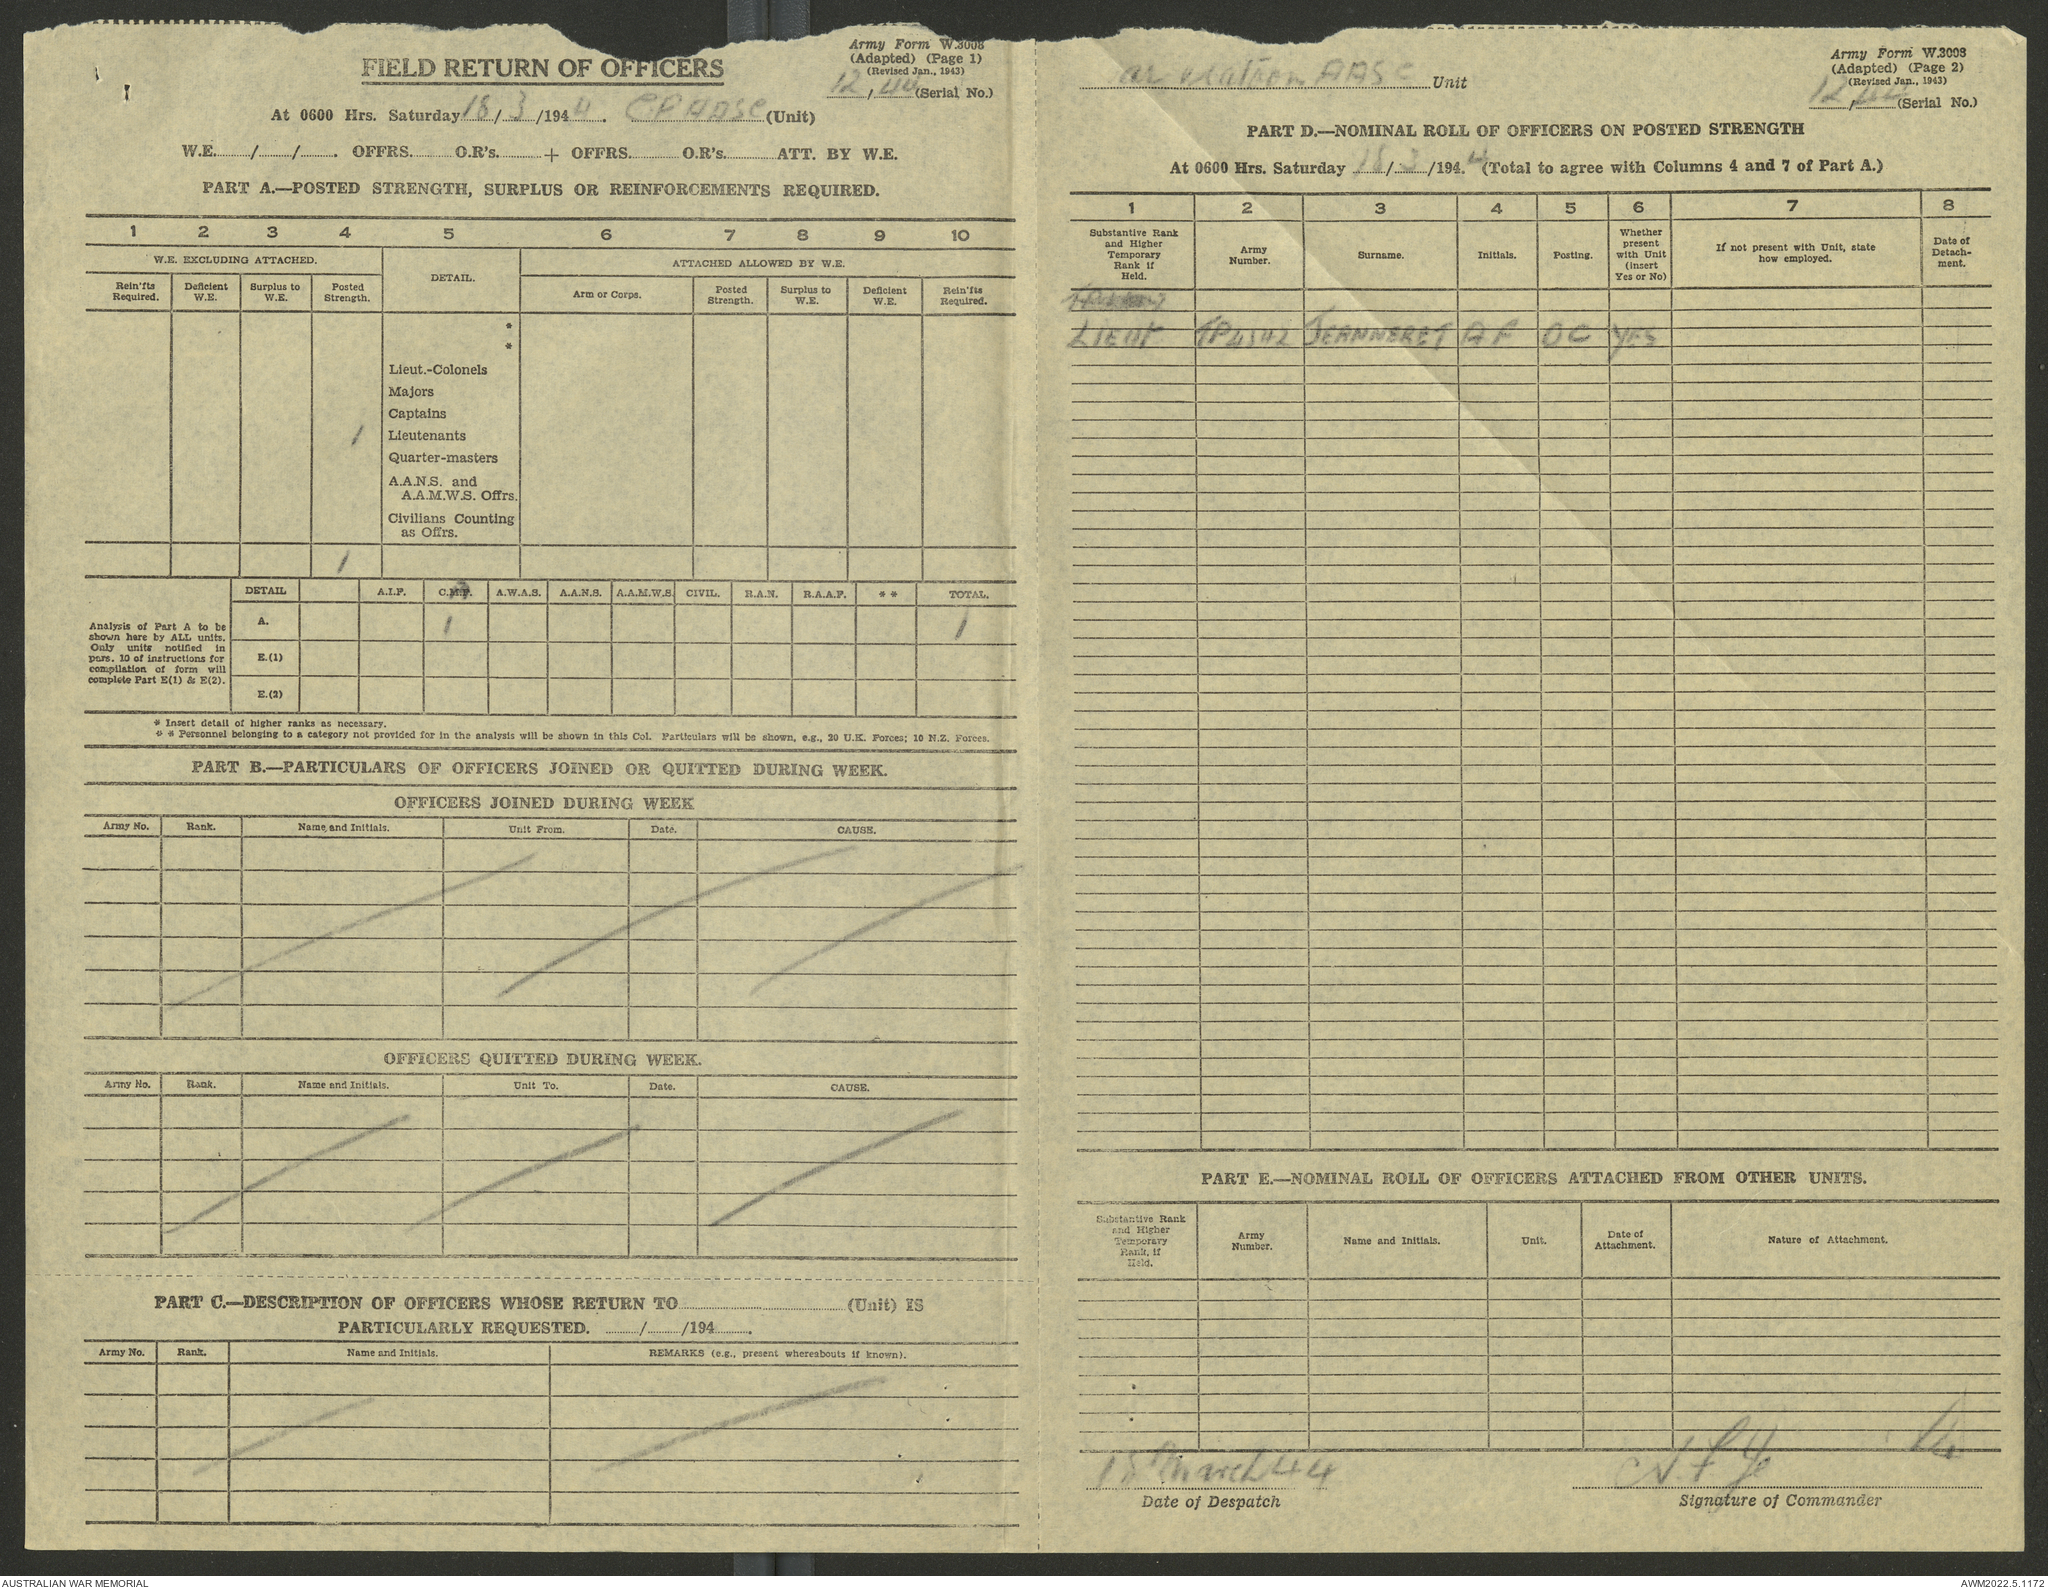 Army Form W.3008
(Adapted) (Page 1)
(Revised Jan., 1943)
12, 44 (Serial No.)
FIELD RETURN OF OFFICERS
At 0600 Hrs. Saturday 18/3/1944. CP AASC (Unit)
W.E. / / . OFFRS. O.R's. + OFFRS. O.R's. ATT. BY W.E.
PART A.—POSTED STRENGTH, SURPLUS OR REINFORCEMENTS REQUIRED.
1 2 3 4 5 6 7 8 9 10
W.E. EXCLUDING ATTACHED. DETAIL. ATTACHED ALLOWED BY W.E.
Rein'fts Required. Deficient W.E. Surplus to W.E. Posted Strength. Arm or Corps. Posted Strength. Surplus to W.E. Deficient W.E. Rein'fts Required.
*
*
Lieut.-Colonels
Majors
Captains
1 Lieutenants
Quarter-masters
A.A.N.S. and
A.A.M.W.S. Offrs.
Civilians Counting
as Offrs.
1
DETAIL A.I.F. C.M.F. A.W.A.S. A.A.N.S. A.A.M.W.S. CIVIL. R.A.N. R.A.A.F. ** TOTAL.
Analysis of Part A to be
shown here by ALL units.
Only units notified in
para. 10 of instructions for
compilation of form will
complete Part E(1) & E(2).
A. 1 1
E.(1)
E.(2)
* Insert detail of higher ranks as necessary.
* * Personnel belonging to a category not provided for in the analysis will be shown in this Col. Particulars will be shown, e.g., 20 U.K. Forces; 10 N.Z. Forces.
PART B.—PARTICULARS OF OFFICERS JOINED OR QUITTED DURING WEEK.
OFFICERS JOINED DURING WEEK
Army No. Rank. Name and Initials. Unit From. Date. CAUSE.
OFFICERS QUITTED DURING WEEK.
Army No. Rank. Name and Initials. Unit To. Date. CAUSE.
PART C.—DESCRIPTION OF OFFICERS WHOSE RETURN TO (Unit) IS
PARTICULARLY REQUESTED. / /194 .
Army No. Rank. Name and Initials. REMARKS (e.g., present whereabouts if known).
Army Form W.3008
(Adapted) (Page 2)
(Revised Jan., 1943)
12, 44 (Serial No.)
Platoon AASC Unit
PART D.—NOMINAL ROLL OF OFFICERS ON POSTED STRENGTH
At 0600 Hrs. Saturday 18/3/1944. (Total to agree with Columns 4 and 7 of Part A.)
1 2 3 4 5 6 7 8
Substantive Rank and Higher Temporary Rank if Held. Army Number. Surname. Initials. Posting. Whether present with Unit (insert Yes or No) If not present with Unit, state how employed. Date of Detachment.
LIEUT JEANNERET AF OC YES
PART E.—NOMINAL ROLL OF OFFICERS ATTACHED FROM OTHER UNITS.
Substantive Rank and Higher Temporary Rank, if Held. Army Number. Name and Initials. Unit. Date of Attachment. Nature of Attachment.
18 March 44
Date of Despatch
Signature of Commander
AUSTRALIAN WAR MEMORIAL
AWM2022.5.1172